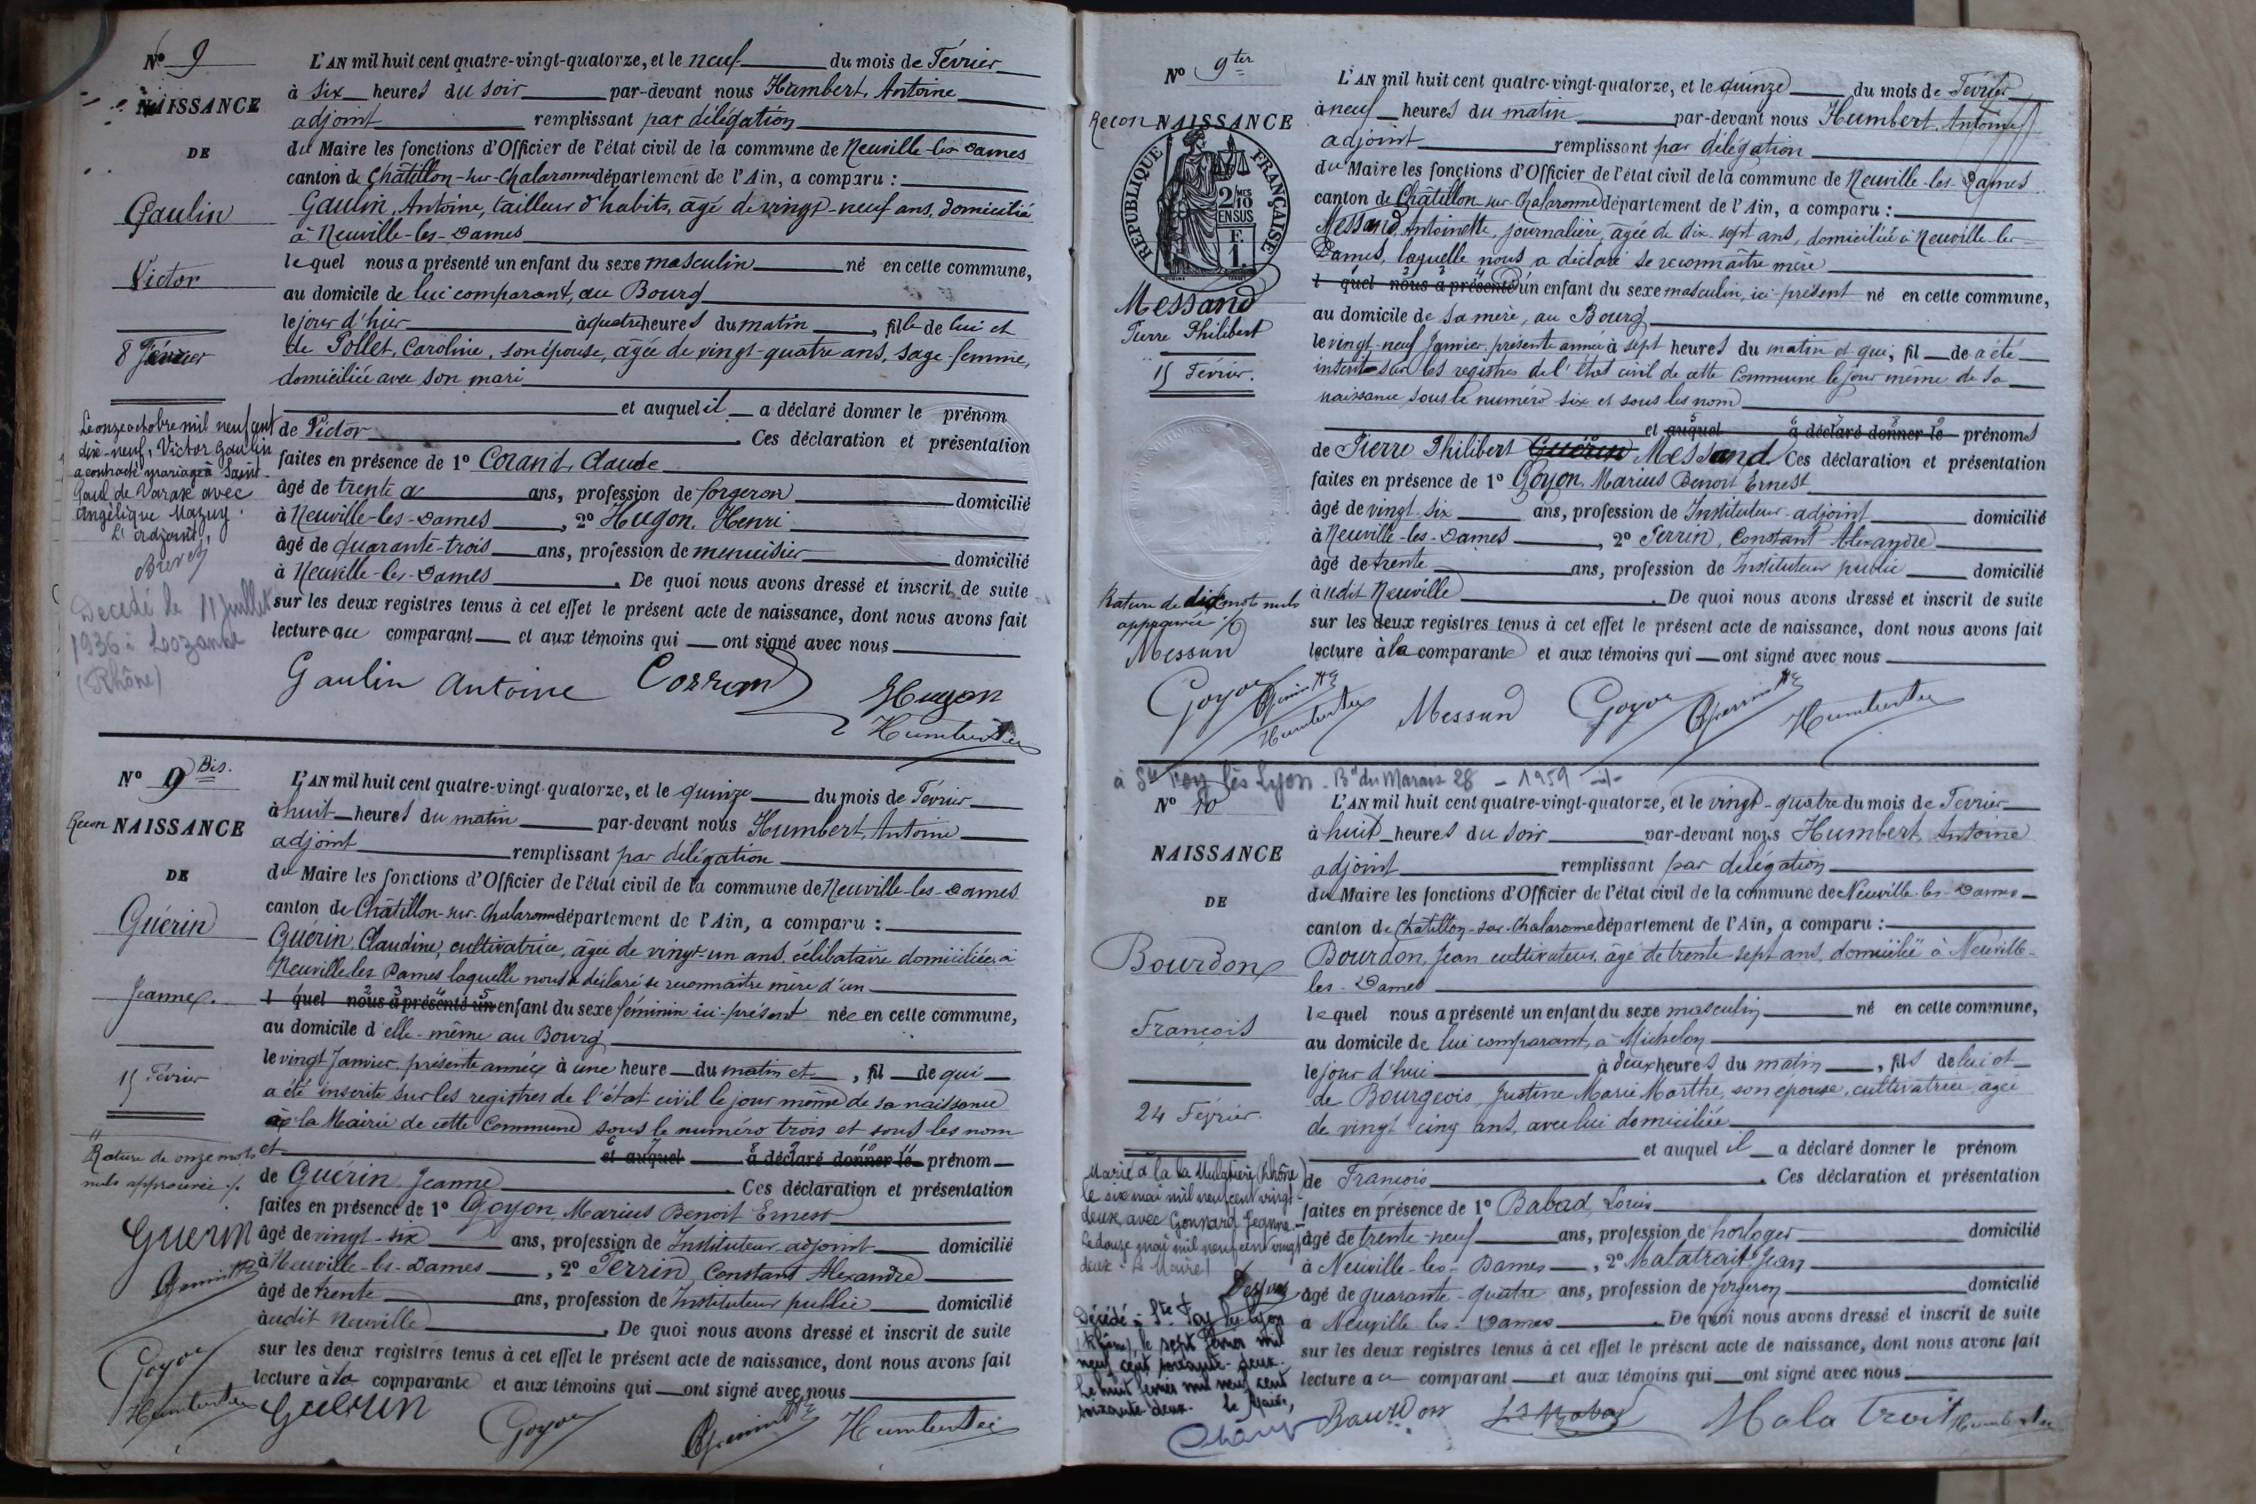 N° 9
NAISSANCE
DE
Gaulin
Victor
8 Février
L'AN mil huit cent quatre-vingt-quatorze, et le neuf du mois de Février
à six heures du soir par-devant nous Humbert, Antoine
adjoint remplissant par délégation
du Maire les fonctions d'Officier de l'état civil de la commune de Neuville-les-Dames
canton de Châtillon-sur-Chalaronne département de l'Ain, a comparu :
Gaulin, Antoine, tailleur d'habits, âgé de vingt-neuf ans, domicilié
à Neuville-les-Dames
lequel nous a présenté un enfant du sexe masculin né en cette commune,
au domicile de lui comparant, au Bourg
le jour d'hier à quatre heures du matin, fils de lui et
de Pollet, Caroline, son épouse, âgée de vingt-quatre ans, sage-femme,
domiciliée avec son mari
et auquel il a déclaré donner le prénom
de Victor. Ces déclaration et présentation
faites en présence de 1° Corand, Claude
âgé de trente ans, profession de forgeron domicilié
à Neuville-les-Dames, 2° Hugon, Henri
âgé de quarante-trois ans, profession de menuisier domicilié
à Neuville-les-Dames. De quoi nous avons dressé et inscrit de suite
sur les deux registres tenus à cet effet le présent acte de naissance, dont nous avons fait
lecture au comparant et aux témoins qui ont signé avec nous
Le onze octobre mil neuf cent
dix-neuf, Victor Gaulin
a contracté mariage à Saint
Paul de Varax avec
Angélique Mazuy.
L'adjoint,
Décédé le 11 juillet
1936 à Lozanne
(Rhône)
Gaulin Antoine Corrand Hugon
Humbert Ant
N° 9 Bis.
Recon NAISSANCE
DE
Guérin
Jeanne.
15 Février
L'AN mil huit cent quatre-vingt-quatorze, et le quinze du mois de Février
à huit heures du matin par-devant nous Humbert, Antoine
adjoint remplissant par délégation
du Maire les fonctions d'Officier de l'état civil de la commune de Neuville-les-Dames
canton de Châtillon-sur-Chalaronne département de l'Ain, a comparu :
Guérin, Claudine, cultivatrice, âgée de vingt-un ans, célibataire domiciliée à
Neuville-les-Dames laquelle nous a déclaré se reconnaître mère d'un
l quel nous a présenté un enfant du sexe féminin ici-présent née en cette commune,
au domicile d'elle-même au Bourg
le vingt Janvier, présente année à une heure du matin et, fil de qui
a été inscrite sur les registres de l'état civil le jour même de sa naissance
à la Mairie de cette Commune sous le numéro trois et sous les nom
et et auquel a déclaré donner le prénom
de Guérin Jeanne. Ces déclaration et présentation
faites en présence de 1° Goyon, Marius Benoit Ernest
âgé de vingt-six ans, profession de Instituteur adjoint domicilié
à Neuville-les-Dames, 2° Perrin, Constant Alexandre
âgé de trente ans, profession de Instituteur public domicilié
audit Neuville. De quoi nous avons dressé et inscrit de suite
sur les deux registres tenus à cet effet le présent acte de naissance, dont nous avons fait
lecture à la comparante et aux témoins qui ont signé avec nous
Rature de onze mots
nuls approuvée ./.
Guerin
Goyon
Humbert Ant
Guerin Goyon CPerrin Humbert Ant
N° 9 ter
Recon NAISSANCE
RÉPUBLIQUE FRANÇAISE
2/10 MES
EN SUS
F.
1.
Messand
Pierre Philibert
15 Février.
L'AN mil huit cent quatre-vingt-quatorze, et le quinze du mois de Février
à neuf heures du matin par-devant nous Humbert, Antoine
adjoint remplissant par délégation
du Maire les fonctions d'Officier de l'état civil de la commune de Neuville-les-Dames
canton de Châtillon-sur-Chalaronne département de l'Ain, a comparu :
Messand, Antoinette, journalière, âgée de dix-sept ans, domiciliée à Neuville-les-
Dames, laquelle nous a déclaré se reconnaître mère
l quel nous a présenté d'un enfant du sexe masculin, ici-présent né en cette commune,
au domicile de sa mère, au Bourg
le vingt-neuf Janvier présente année à sept heures du matin et qui, fil de a été
inscrit sur les registres de l'état civil de cette Commune le jour même de sa
naissance sous le numéro six et sous les nom
et auquel a déclaré donner le prénoms
de Pierre Philibert Guérin Messand. Ces déclaration et présentation
faites en présence de 1° Goyon, Marius Benoit Ernest
âgé de vingt-six ans, profession de Instituteur-adjoint domicilié
à Neuville-les-Dames, 2° Perrin, Constant Alexandre
âgé de trente ans, profession de Instituteur public domicilié
audit Neuville. De quoi nous avons dressé et inscrit de suite
sur les deux registres tenus à cet effet le présent acte de naissance, dont nous avons fait
lecture à la comparante et aux témoins qui ont signé avec nous
Rature de dix mots nuls
approuvée ./.
Messand
Goyon CPerrin Humbert Ant Messand Goyon CPerrin Humbert Ant
à Ste Foy lès Lyon - Bd du Marais 28 - 1959
N° 10
NAISSANCE
DE
Bourdon
François
24 Février.
L'AN mil huit cent quatre-vingt-quatorze, et le vingt-quatre du mois de Février
à huit heures du soir par-devant nous Humbert, Antoine
adjoint remplissant par délégation
du Maire les fonctions d'Officier de l'état civil de la commune de Neuville-les-Dames
canton de Châtillon-sur-Chalaronne département de l'Ain, a comparu :
Bourdon, Jean cultivateur, âgé de trente-sept ans, domicilié à Neuville-
les-Dames
lequel nous a présenté un enfant du sexe masculin né en cette commune,
au domicile de lui comparant, à Michelon
le jour d'hui à deux heures du matin, fils de lui et
de Bourgeois, Justine Marie Marthe, son épouse, cultivatrice, âgée
de vingt cinq ans, avec lui domiciliée
et auquel il a déclaré donner le prénom
de François. Ces déclaration et présentation
faites en présence de 1° Babad, Louis
âgé de trente-neuf ans, profession de horloger domicilié
à Neuville-les-Dames, 2° Malatrait Jean
âgé de quarante-quatre ans, profession de forgeron domicilié
à Neuville-les-Dames. De quoi nous avons dressé et inscrit de suite
sur les deux registres tenus à cet effet le présent acte de naissance, dont nous avons fait
lecture au comparant et aux témoins qui ont signé avec nous
Marié à la Mulatière (Rhône)
le six mai mil neuf cent vingt-
deux, avec Gonnard Jeanne.-
Le douze mai mil neuf cent vingt
deux - Le Maire
Décédé à Ste Foy lès Lyon
(Rhône), le sept février mil
neuf cent soixante-deux.
Le huit février mil neuf cent
soixante deux. Le Maire,
Bourdon Ls Babad Malatrait Humbert Ant